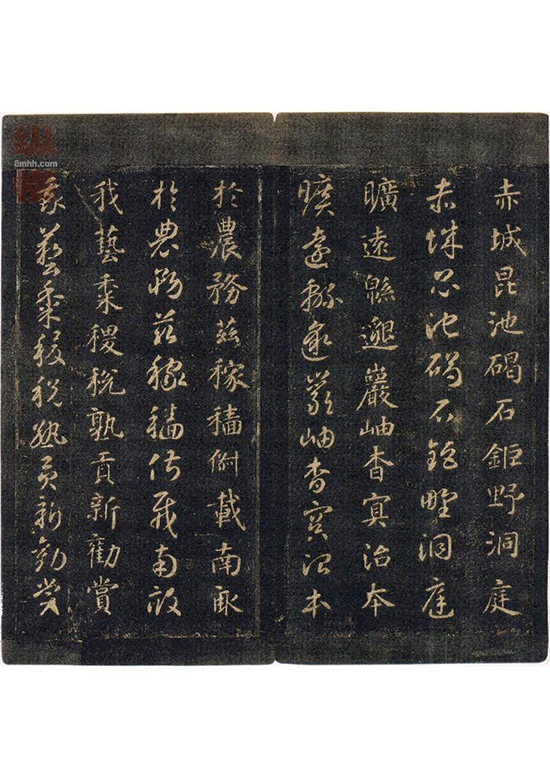 8mhh.com
赤城昆池碣石鉅野洞庭
赤城昆池碣石鉅野洞庭
曠遠緜邈巖岫杳冥治本
曠遠緜邈巖岫杳冥治本
於農務茲稼穡俶載南畝
於農務茲稼穡俶載南畝
我藝黍稷稅熟貢新勸賞
我藝黍稷稅熟貢新勸賞